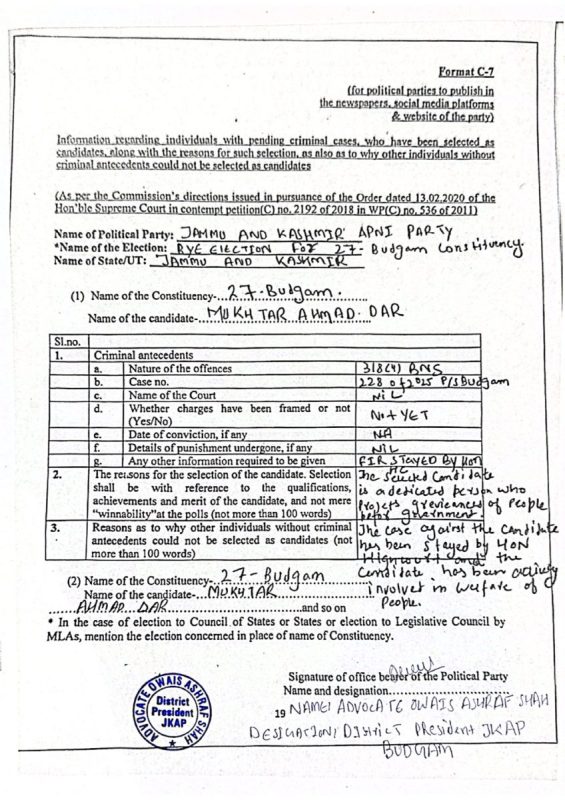 Format C-7
(for political parties to publish in
the newspapers, social media platforms
& website of the party)
Information regarding individuals with pending criminal cases, who have been selected as
candidates, along with the reasons for such selection, as also as to why other individuals without
criminal antecedents could not be selected as candidates
(As per the Commission's directions issued in pursuance of the Order dated 13.02.2020 of the
Hon'ble Supreme Court in contempt petition(C) no. 2192 of 2018 in WP(C) no. 536 of 2011)
Name of Political Party: JAMMU AND KASHMIR APNI PARTY
*Name of the Election: BYE ELECTION FOR 27- Budgam Constituency.
Name of State/UT: JAMMU AND KASHMIR
(1) Name of the Constituency- 27-Budgam.
Name of the candidate- MUKHTAR AHMAD DAR
Sl.no.
1. Criminal antecedents
a. Nature of the offences 318(4) BNS
b. Case no. 228 of 2025 P/S Budgam
c. Name of the Court NiL
d. Whether charges have been framed or not Not YET
(Yes/No)
e. Date of conviction, if any NA
f. Details of punishment undergone, if any NIL
g. Any other information required to be given FIR STAYED BY HON HC
2. The reasons for the selection of the candidate. Selection
shall be with reference to the qualifications,
achievements and merit of the candidate, and not mere
"winnability"at the polls (not more than 100 words)
The selected Candidate
is a dedicated person who
Projets greviences of People
befor government.
3. Reasons as to why other individuals without criminal
antecedents could not be selected as candidates (not
more than 100 words)
The case against the candidate
has been stayed by HON
High court and the
Candidate has been actively
involvet in welfare of
People.
(2) Name of the Constituency- 27-Budgam
Name of the candidate- MUKHTAR
AHMAD DAR and so on
* In the case of election to Council of States or States or election to Legislative Council by
MLAs, mention the election concerned in place of name of Constituency.
Signature of office bearer of the Political Party
Name and designation
19 NAME/ ADVOCATE OWAIS ASHRAF SHAH
DESIGNATION/ District President JKAP
BUDGAM
ADVOCATE OWAIS ASHRAF SHAH
District
President
JKAP